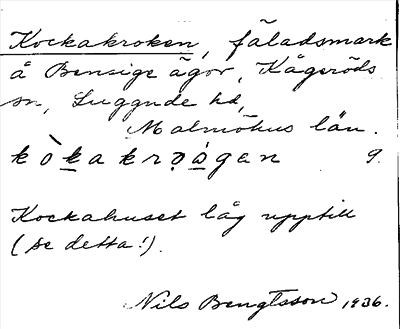 Kockakroken, fäladsmark
å Bensige ägor, Kågeröds
sn, Luggude hd,
Malmöhus län.
kòkakrọágen 9.
Kockahuset låg upptill
(se detta!).
Nils Bengtsson 1936.